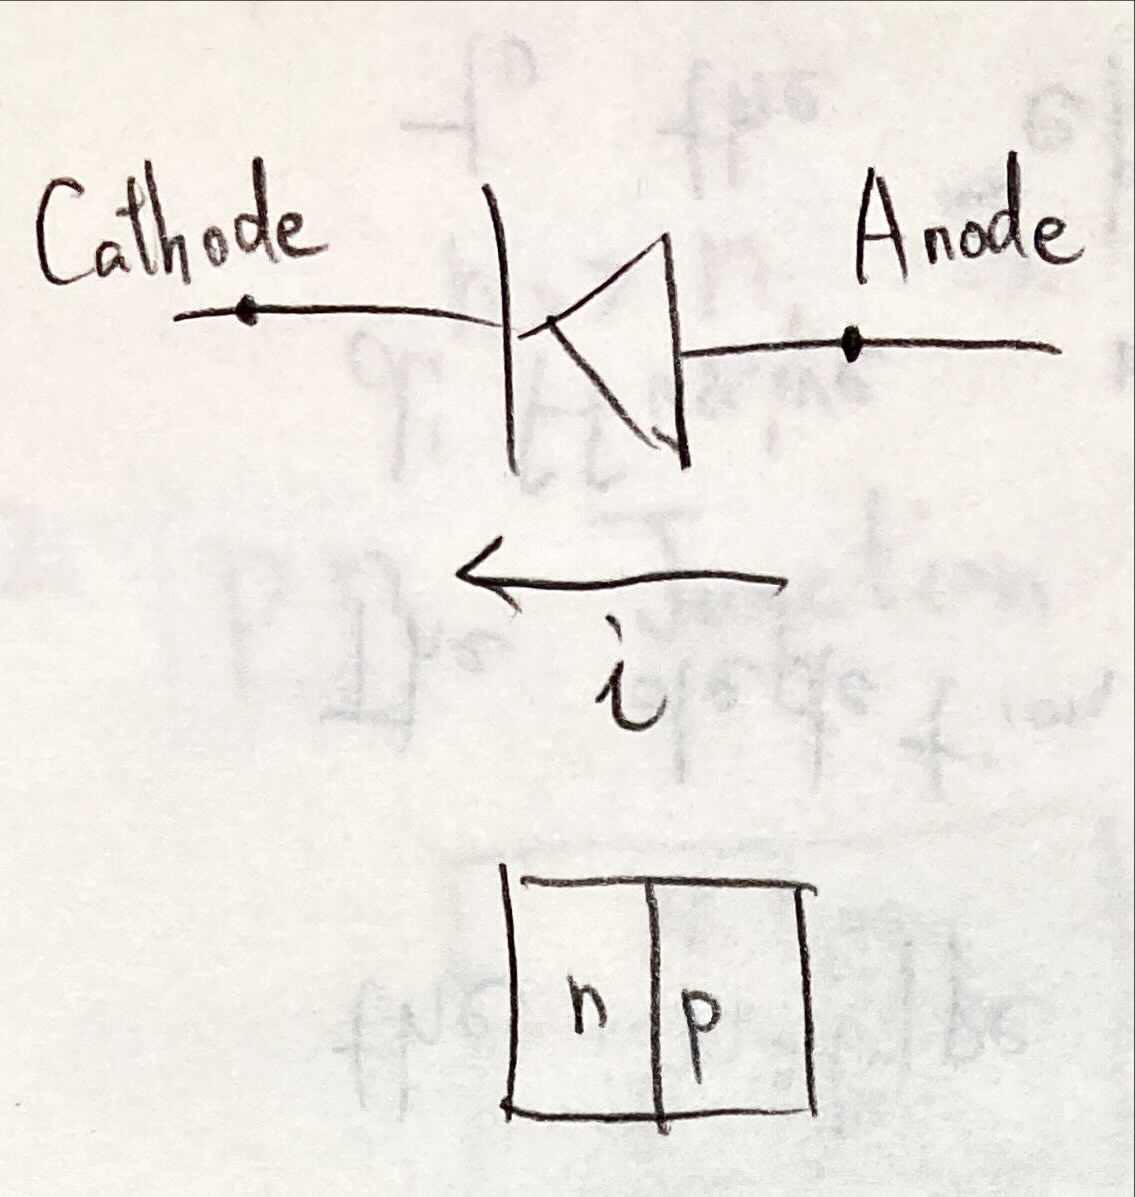 Cathode Anode
i
n p